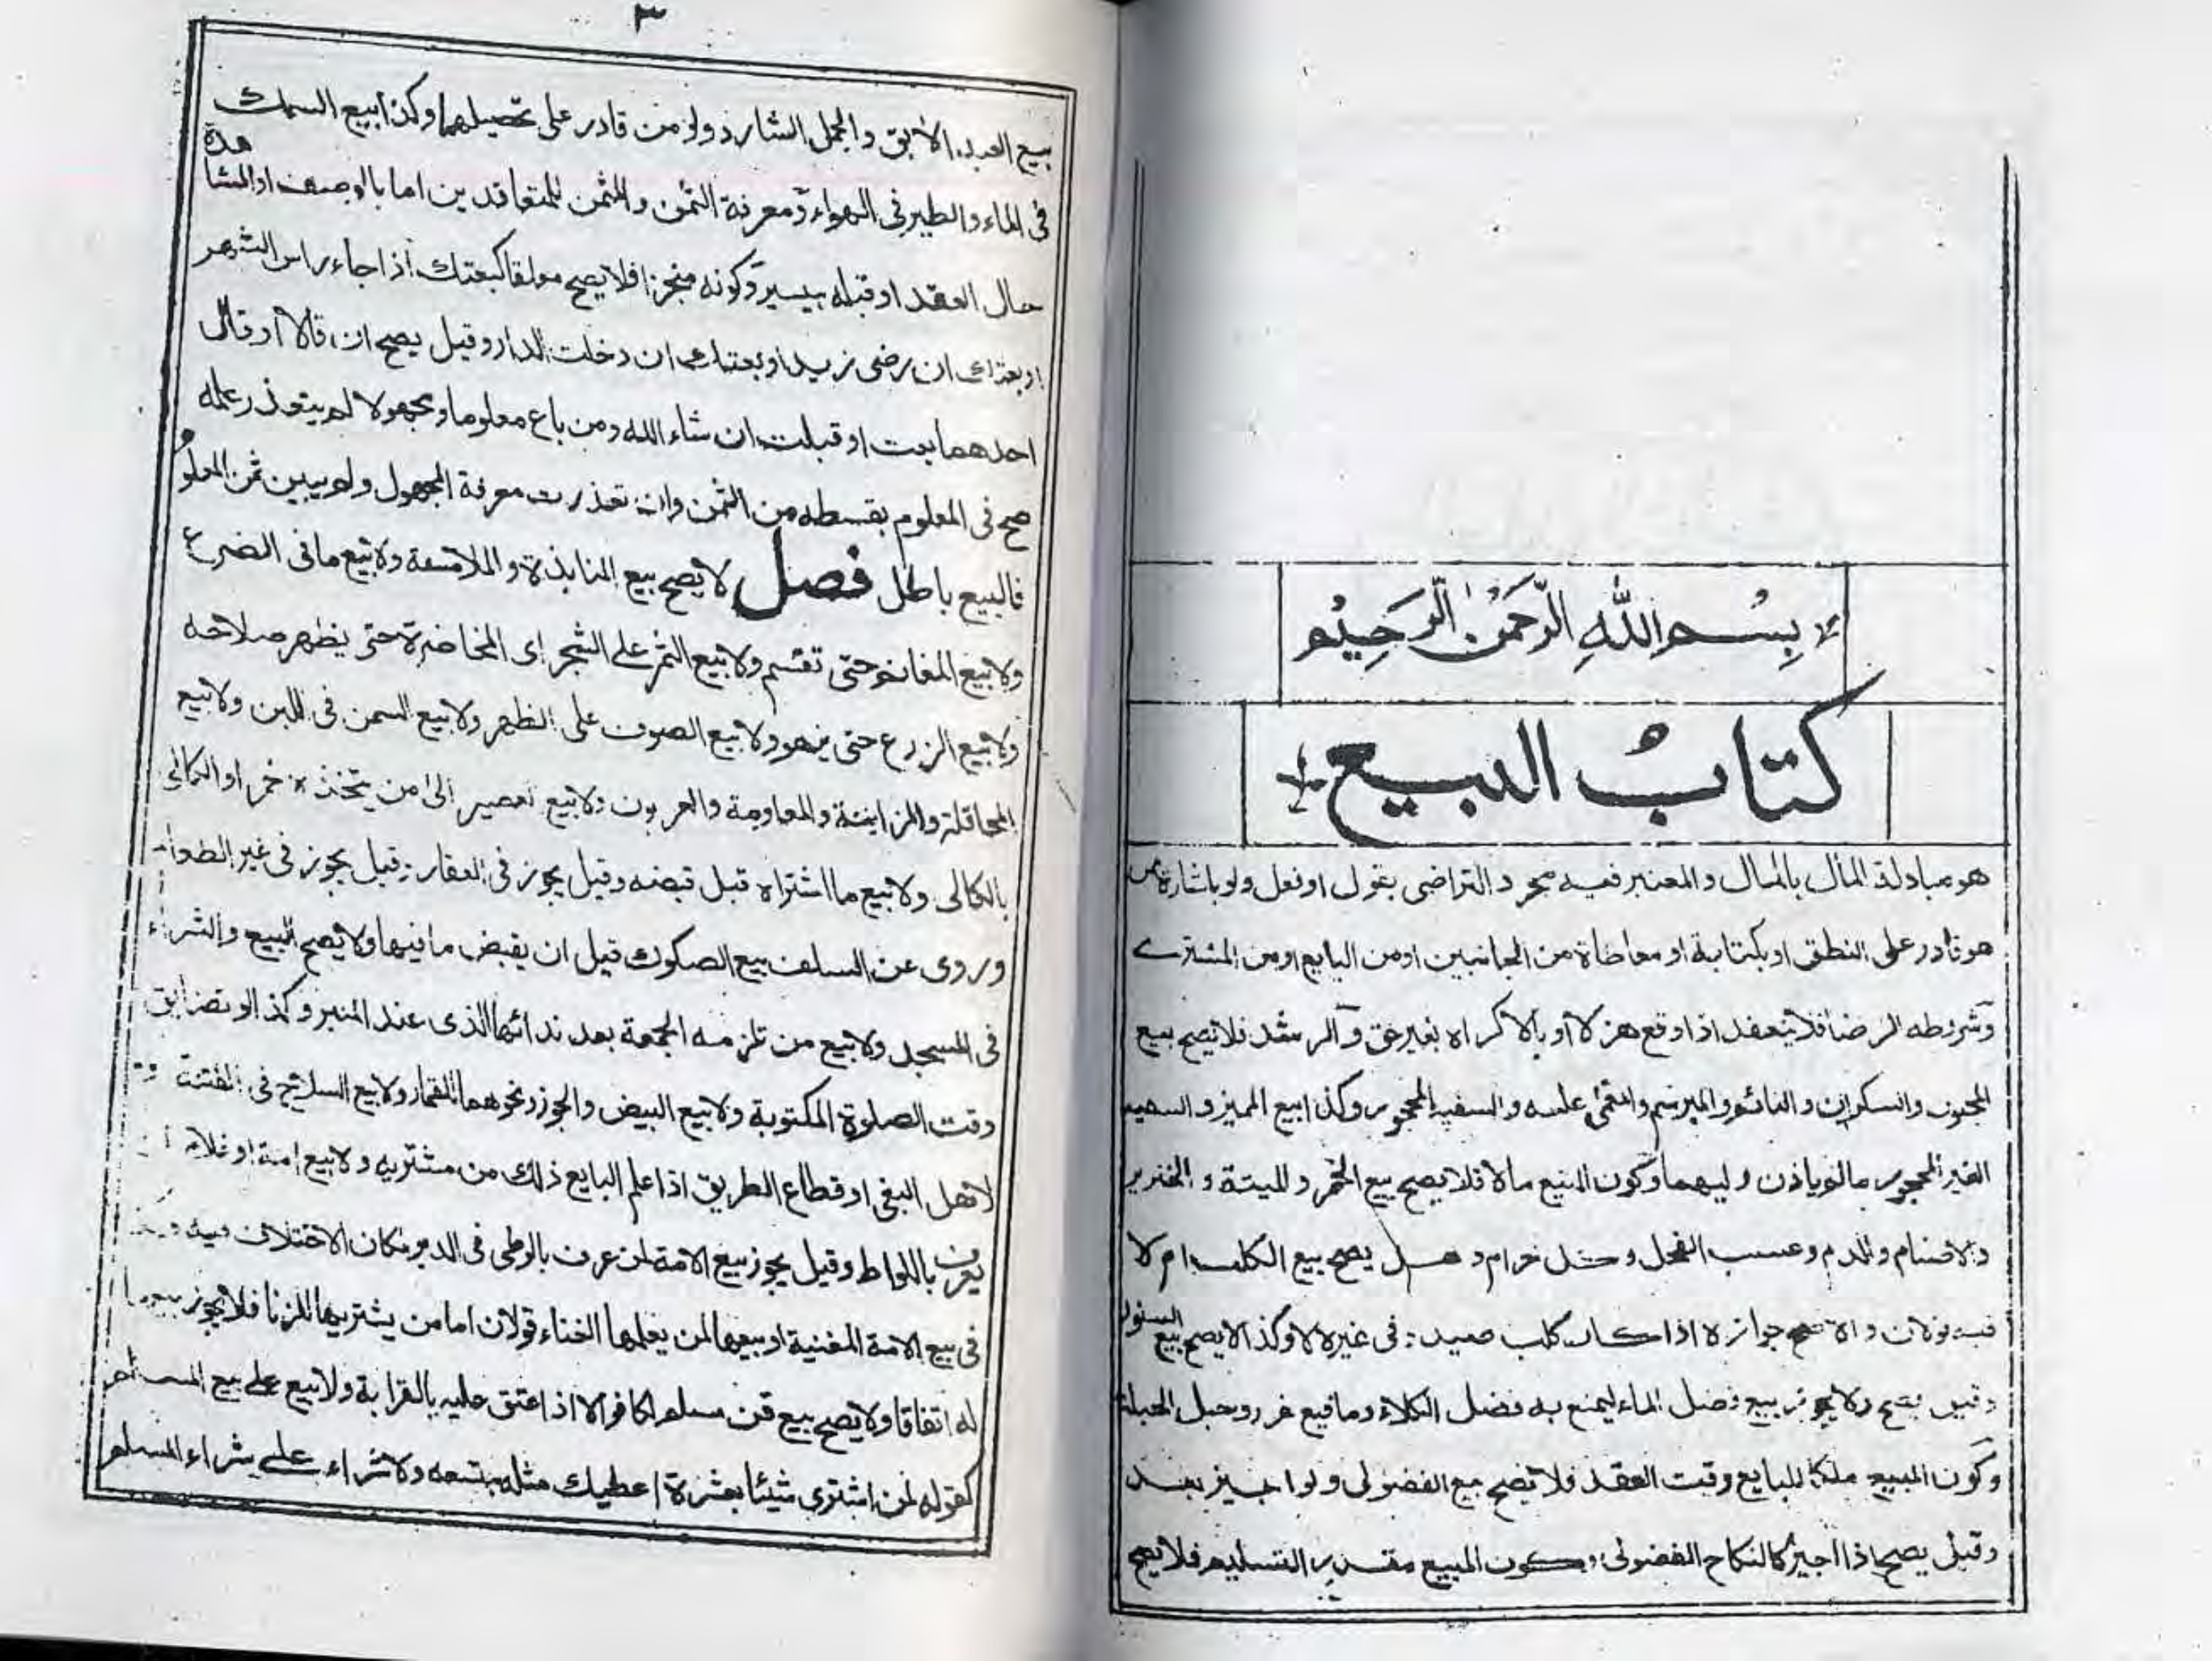 بسم الله الرحمن الرحيم
كتاب البيع
هو مبادلة المال بالمال والمعتبر فيه مجرد التراضي بقول او فعل ولو باشارة من
هو قادر على النطق او بكتابة او معاطاة من الجانبين او من البايع او من المشترے
وشرطه الرضا فلا ينعقد اذا وقع هزلا او بالاكراه بغير حق والرشد فلا يصح بيع
المجنون والسكران والنائم والمبرسم والمغمى عليه والسفيه المحجور وكذا بيع المميز والسفيه
الغير المحجور مالم ياذن وليهما وكون المبيع مالا فلا يصح بيع الخمر والميتة والخنزير
والاصنام والدم وعسب الفحل وكل حرام وهل يصح بيع الكلب ام لا
فيه قولان والاصح جوازه اذا كان كلب صيد وفي غيره لا وكذا لا يصح بيع السنور
وقيل يصح ولا يجوز بيع فضل الماء ليمنع به فضل الكلاء وما فيه غرر وحبل الحبلة
وكون المبيع ملكا للبايع وقت العقد فلا يصح بيع الفضولى ولو اجيز بعد
وقيل يصح اذا اجيز كالنكاح الفضولى وكون المبيع مقدور التسليم فلا يصح
٣
بيع العبد الابق والجمل الشارد ولو من قادر على تحصيلهما وكذا بيع السمك
فى الماء والطير فى الهواء ومعرفة الثمن والمثمن للمتعاقدين اما بالوصف او المشاهدة
حال العقد او قبله بيسير وكونه منجزا فلا يصح معلقا كبعتك اذا جاء راس الشهر
او بعتك ان رضى زيد او بعتك ان دخلت الدار وقيل يصح ان قالا او قال
احدهما بعت او قبلت ان شاء الله ومن باع معلوما ومجهولا لم يتعذر علمه
صح فى المعلوم بقسطه من الثمن وان تعذرت معرفة المجهول ولم يبين ثمن المعلوم
فالبيع باطل فصل لا يصح بيع المنابذة والملامسة ولا بيع ما فى الضرع
ولا بيع المغانم حتى تقسم ولا بيع الثمر على الشجر اى المخاضرة حتى يظهر صلاحه
ولا بيع الزرع حتى يزهو ولا بيع الصوف على الظهر ولا بيع السمن فى اللبن ولا بيع
المحاقلة والمزابنة والمعاومة والعربون ولا بيع العصير الى من يتخذه خمرا والكالى
بالكالى ولا بيع ما اشتراه قبل قبضه وقيل يجوز فى العقار وقيل يجوز فى غير الطعام
وروى عن السلف بيع الصكوك قبل ان يقبض ما فيها ولا يصح البيع والشراء
فى المسجد ولا بيع من تلزمه الجمعة بعد ندائها الذى عند المنبر وكذا لو تضايق
وقت الصلوة المكتوبة ولا بيع البيض والجوز ونحوهما للقمار ولا بيع السلاح فى الفتنة
لاهل البغى او قطاع الطريق اذا علم البايع ذلك من مشتريه ولا بيع امة او غلام
يعرف باللواط وقيل يجوز بيع الامة لمن عرف بالوطى فى الدبر مكان الاختلاف فيه
فى بيع الامة المغنية او بيعها لمن يعلمها الغناء قولان اما من يشتريها للزنا فلا يجوز بيعها
له اتفاقا ولا يصح بيع قن مسلم لكافر الا اذا عتق عليه بالقرابة ولا بيع على بيع المسلم
كقوله لمن اشترى شيئا بعشرة اعطيك مثله بتسعه ولا شراء على شراء المسلم